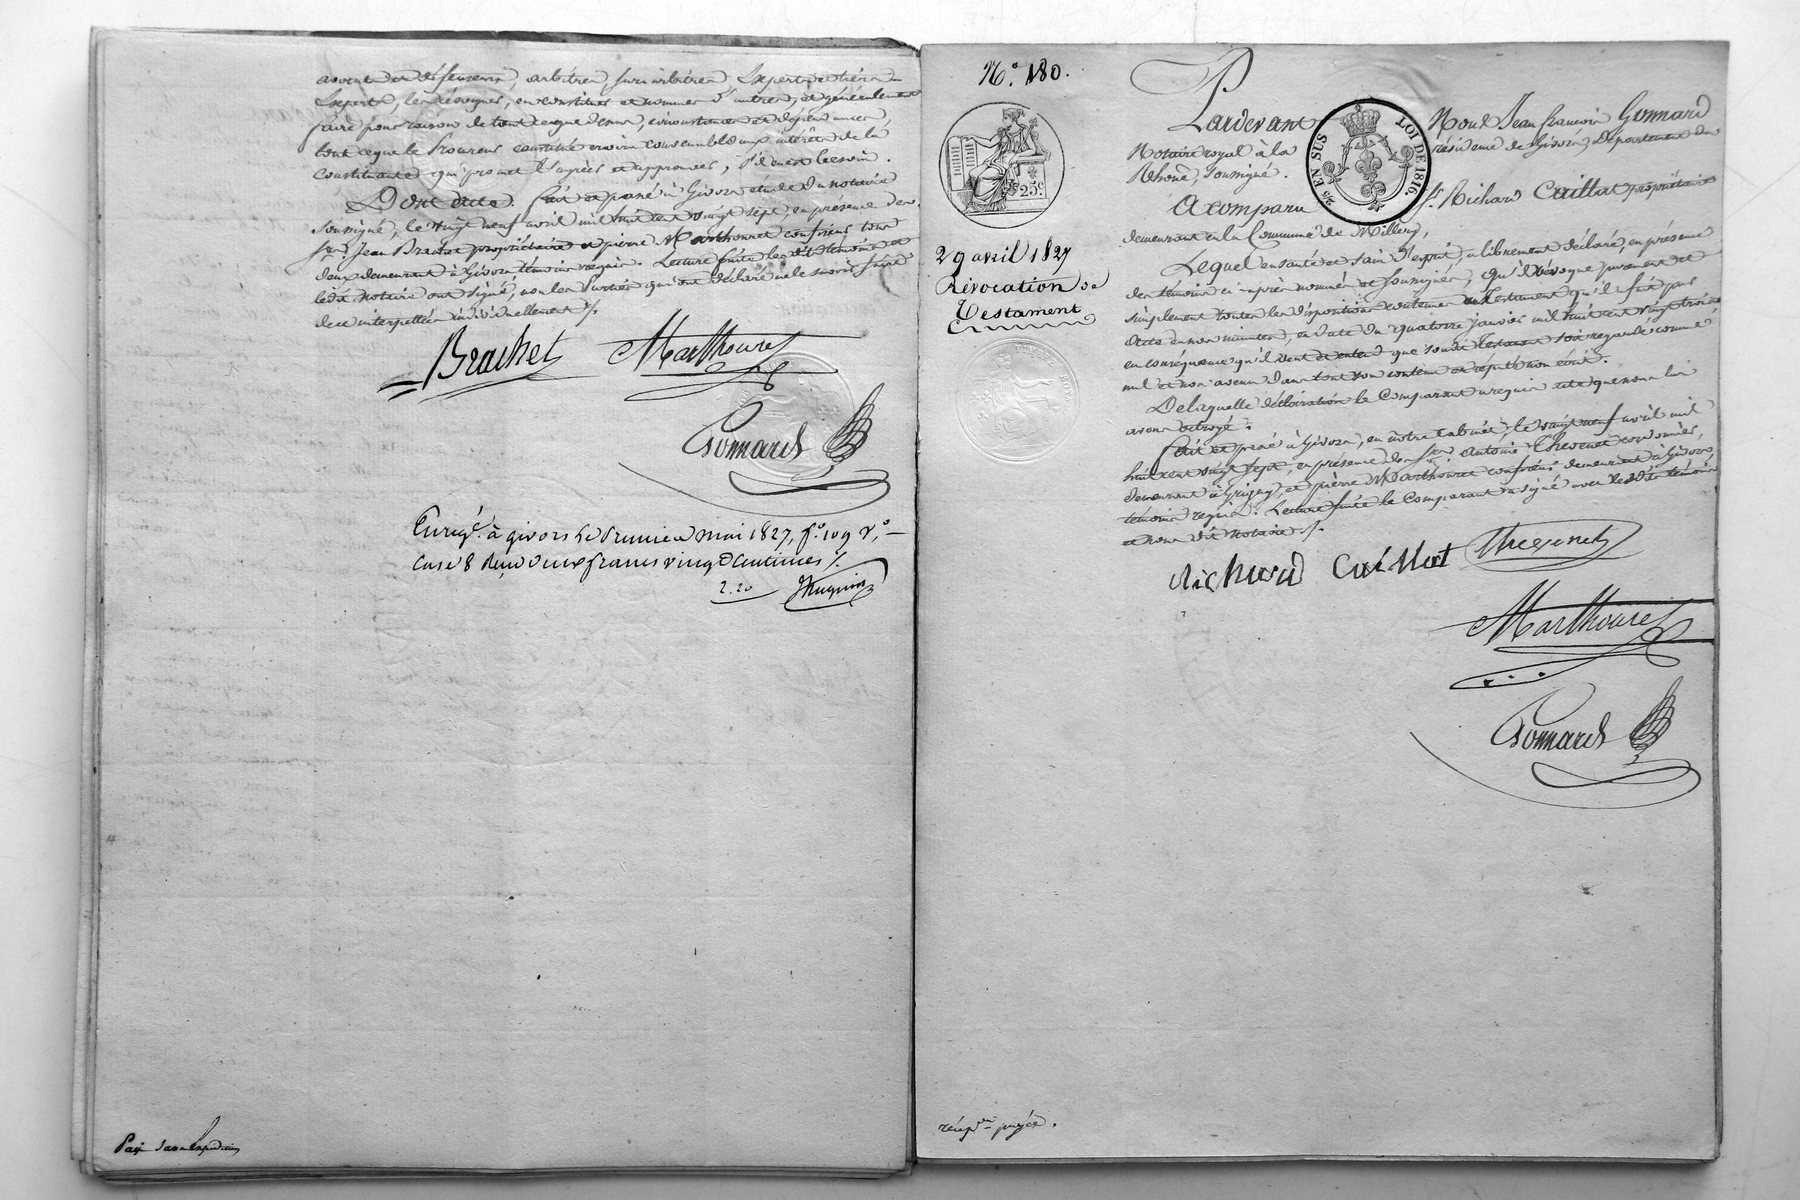 avouer des défenseurs, arbitres, surarbitres, experts et tiers
experts, les révoquer, en constituer et nommer d'autres, et généralement
faire pour raison de tout ce que dessus, circonstances et dépendances,
tout ce que le Procureur constitué croira convenable aux intérêts de la
constituante qui promet l'agréer et approuver, s'il en est besoin.
Dont acte. fait et passé à Givors étude du notaire
soussigné, le vingt neuf avril mil huit cent vingt sept, en présence des
srs. Jean Brachet propriétaire et pierre Marthouret confiseur tous
deux demeurant à Givors témoins requis. Lecture faite les dits témoins et
ledit Notaire ont signé, non les parties qui ont déclaré ne le savoir faire
de ce interpellées individuellement ./.
Brachet Marthouret
Gonnard
Enregé. à givors le premier mai 1827, fo. 109 vo.
case 8 Reçu deux francs vingt centimes ./.
2.20
Paix sans expédition
No. 180.
25c
29 avril 1827
Révocation de
Testament
Pardevant Nous Jean francois Gonnard
Notaire royal à la résidence de Givors, Département du
Rhône, soussigné.
2/6 EN SUS LOI DE 1816.
A comparu Sr. Richard Caillat propriétaire
demeurant en la Commune de Millery,
Lequel en santé et sain d'esprit, a librement déclaré, en présence
des témoins ci-après nommés et soussignés, qu'il révoque purement et
simplement toutes les dispositions contenues au Testament qu'il a fait par
acte en nos minutes, en date du quatorze janvier mil huit cent vingt trois
en conséquence qu'il veut et entend que son dit Testament soit regardé comme
nul et non avenu dans tout son contenu et réputé non écrit.
De laquelle déclaration le Comparant a requis acte que nous lui
avons octroyé.
Fait et passé à Givors, en notre Cabinet, le vingt neuf avril mil
huit cent vingt sept, en présence des srs. Antoine Thevenet
demeurant à Grigny, et pierre Marthouret confiseur demeurant à Givors,
témoins requis. Lecture faite le Comparant a signé avec lesdits témoins
et nous dit Notaire ./.
Richard Caillat Thevenet
Marthouret
Gonnard